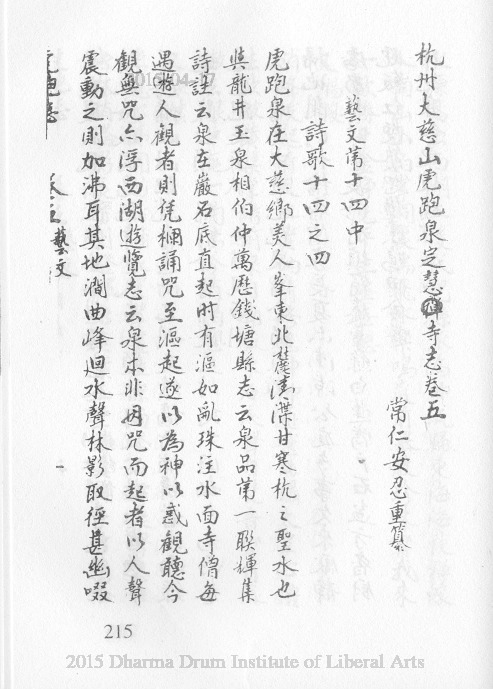 杭州大慈山虎跑泉定慧禪寺志卷五
常仁安忍重纂
藝文第十四中
詩歌十四之四
虎跑泉在大慈鄉美人峯東北麓清深甘寒杭之聖水也
與龍井玉泉相伯仲萬歷錢塘縣志云泉品第一聯輝集
詩註云泉在巖石底直起时有漚如亂珠注水面寺僧每
遇遊人觀者則凭欄誦咒至漚起遂以為神以惑觀聽今
觀無咒亦浮西湖遊覽志云泉本非因咒而起者以人聲
震動之則加沸耳其地澗曲峰迴水聲林影取徑甚幽啜
卷五 藝文
215
2015 Dharma Drum Institute of Liberal Arts